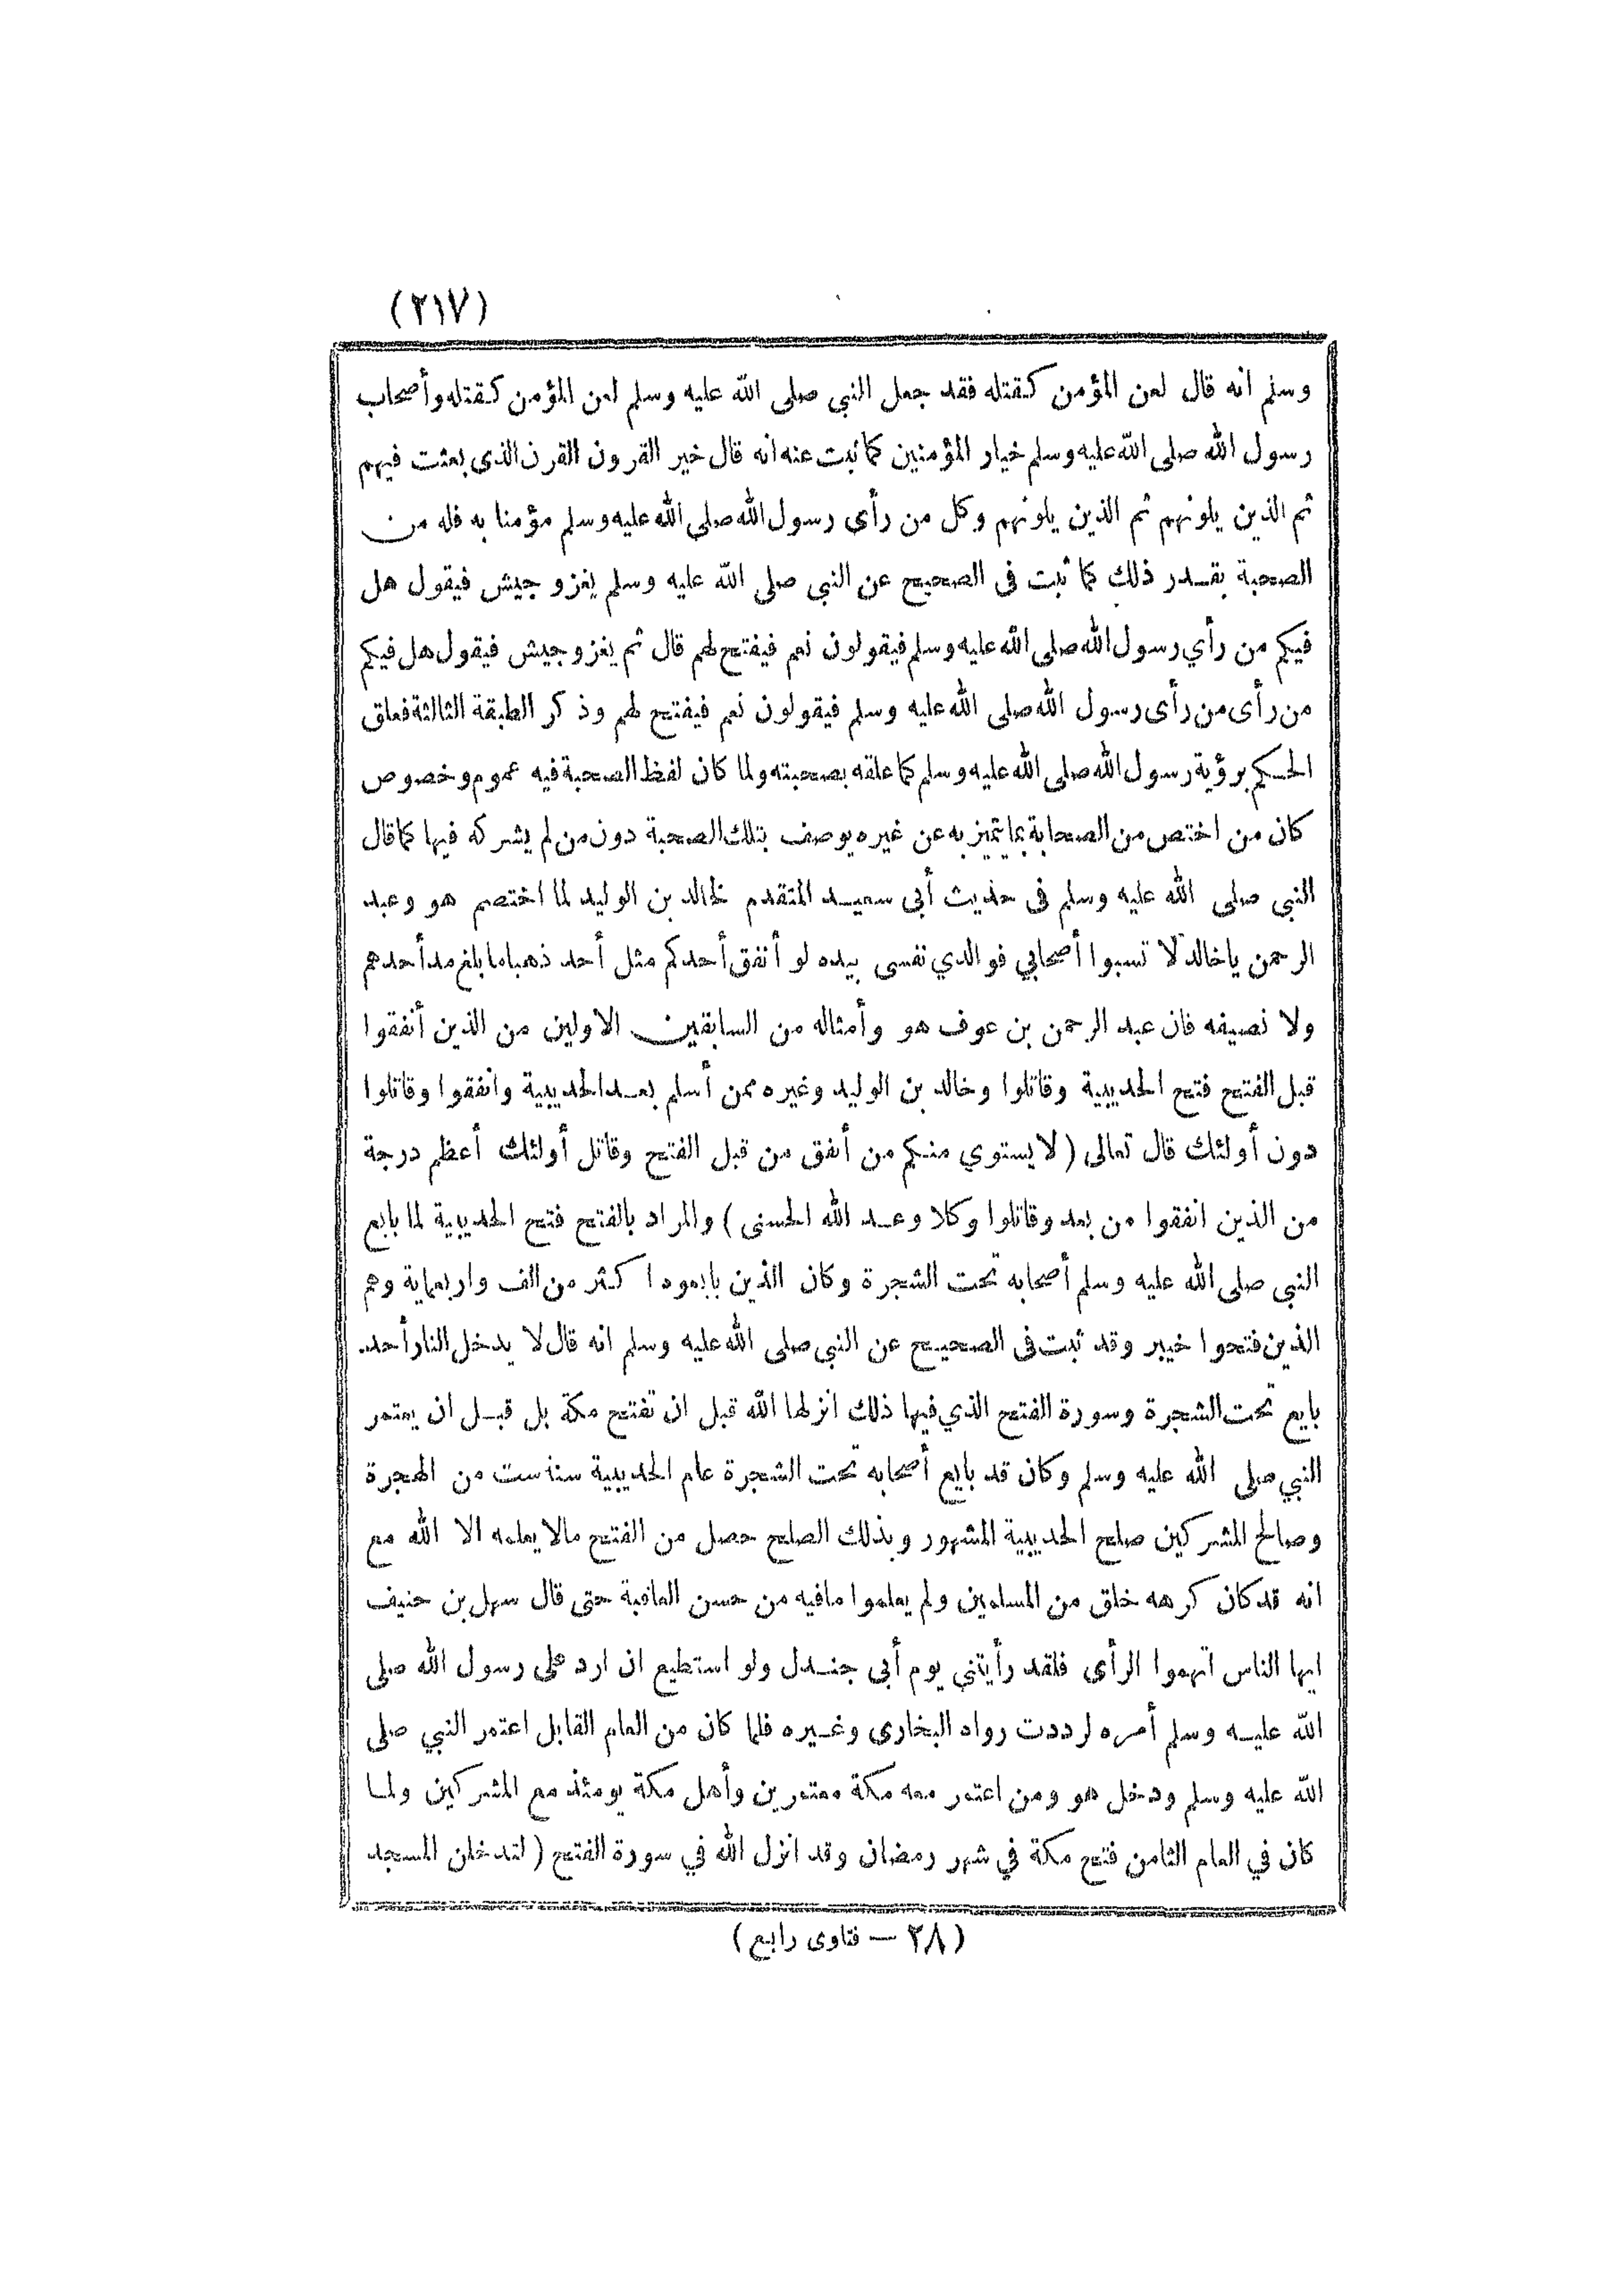 (٢١٧)
وسلم انه قال لعن المؤمن كقتله فقد جعل النبي صلى الله عليه وسلم لعن المؤمن كقتله وأصحاب
رسول الله صلى الله عليه وسلم خيار المؤمنين كما ثبت عنه انه قال خير القرون القرن الذى بعثت فيهم
ثم الذين يلونهم ثم الذين يلونهم وكل من رأى رسول الله صلى الله عليه وسلم مؤمنا به فله من
الصحبة بقدر ذلك كما ثبت فى الصحيح عن النبي صلى الله عليه وسلم يغزو جيش فيقول هل
فيكم من رأي رسول الله صلى الله عليه وسلم فيقولون نعم فيفتح لهم قال ثم يغزو جيش فيقول هل فيكم
من رأى من رأى رسول الله صلى الله عليه وسلم فيقولون نعم فيفتح لهم وذكر الطبقة الثالثة فعلق
الحكم برؤية رسول الله صلى الله عليه وسلم كما علقه بصحبته ولما كان لفظ الصحبة فيه عموم وخصوص
كان من اختص من الصحابة بما يتميز به عن غيره يوصف بتلك الصحبة دون من لم يشركه فيها كما قال
النبي صلى الله عليه وسلم فى حديث أبى سعيد المتقدم لخالد بن الوليد لما اختصم هو وعبد
الرحمن ياخالد لا تسبوا أصحابي فوالذي نفسى بيده لو أنفق أحدكم مثل أحد ذهبا ما بلغ مد أحدهم
ولا نصيفه فان عبد الرحمن بن عوف هو وأمثاله من السابقين الاولين من الذين أنفقوا
قبل الفتح فتح الحديبية وقاتلوا وخالد بن الوليد وغيره ممن أسلم بعد الحديبية وانفقوا وقاتلوا
دون أولئك قال تعالى (لا يستوي منكم من أنفق من قبل الفتح وقاتل أولئك أعظم درجة
من الذين انفقوا من بعد وقاتلوا وكلا وعد الله الحسنى) والمراد بالفتح فتح الحديبية لما بايع
النبي صلى الله عليه وسلم أصحابه تحت الشجرة وكان الذين بايعوه اكثر من الف واربعماية وهم
الذين فتحوا خيبر وقد ثبت فى الصحيح عن النبي صلى الله عليه وسلم انه قال لا يدخل النار أحد
بايع تحت الشجرة وسورة الفتح الذي فيها ذلك انزلها الله قبل ان تفتح مكة بل قبل ان يعتمر
النبي صلى الله عليه وسلم وكان قد بايع أصحابه تحت الشجرة عام الحديبية سنة ست من الهجرة
وصالح المشركين صلح الحديبية المشهور وبذلك الصلح حصل من الفتح مالا يعلمه الا الله مع
انه قد كان كرهه خلق من المسلمين ولم يعلموا مافيه من حسن العاقبة حتى قال سهل بن حنيف
ايها الناس اتهموا الرأى فلقد رأيتني يوم أبى جندل ولو استطيع ان ارد على رسول الله صلى
الله عليه وسلم أمره لرددت رواه البخارى وغيره فلما كان من العام القابل اعتمر النبي صلى
الله عليه وسلم ودخل هو ومن اعتمر معه مكة معتمرين وأهل مكة يومئذ مع المشركين ولما
كان في العام الثامن فتح مكة في شهر رمضان وقد انزل الله في سورة الفتح (لتدخلن المسجد
(٢٨ — فتاوى رابع)